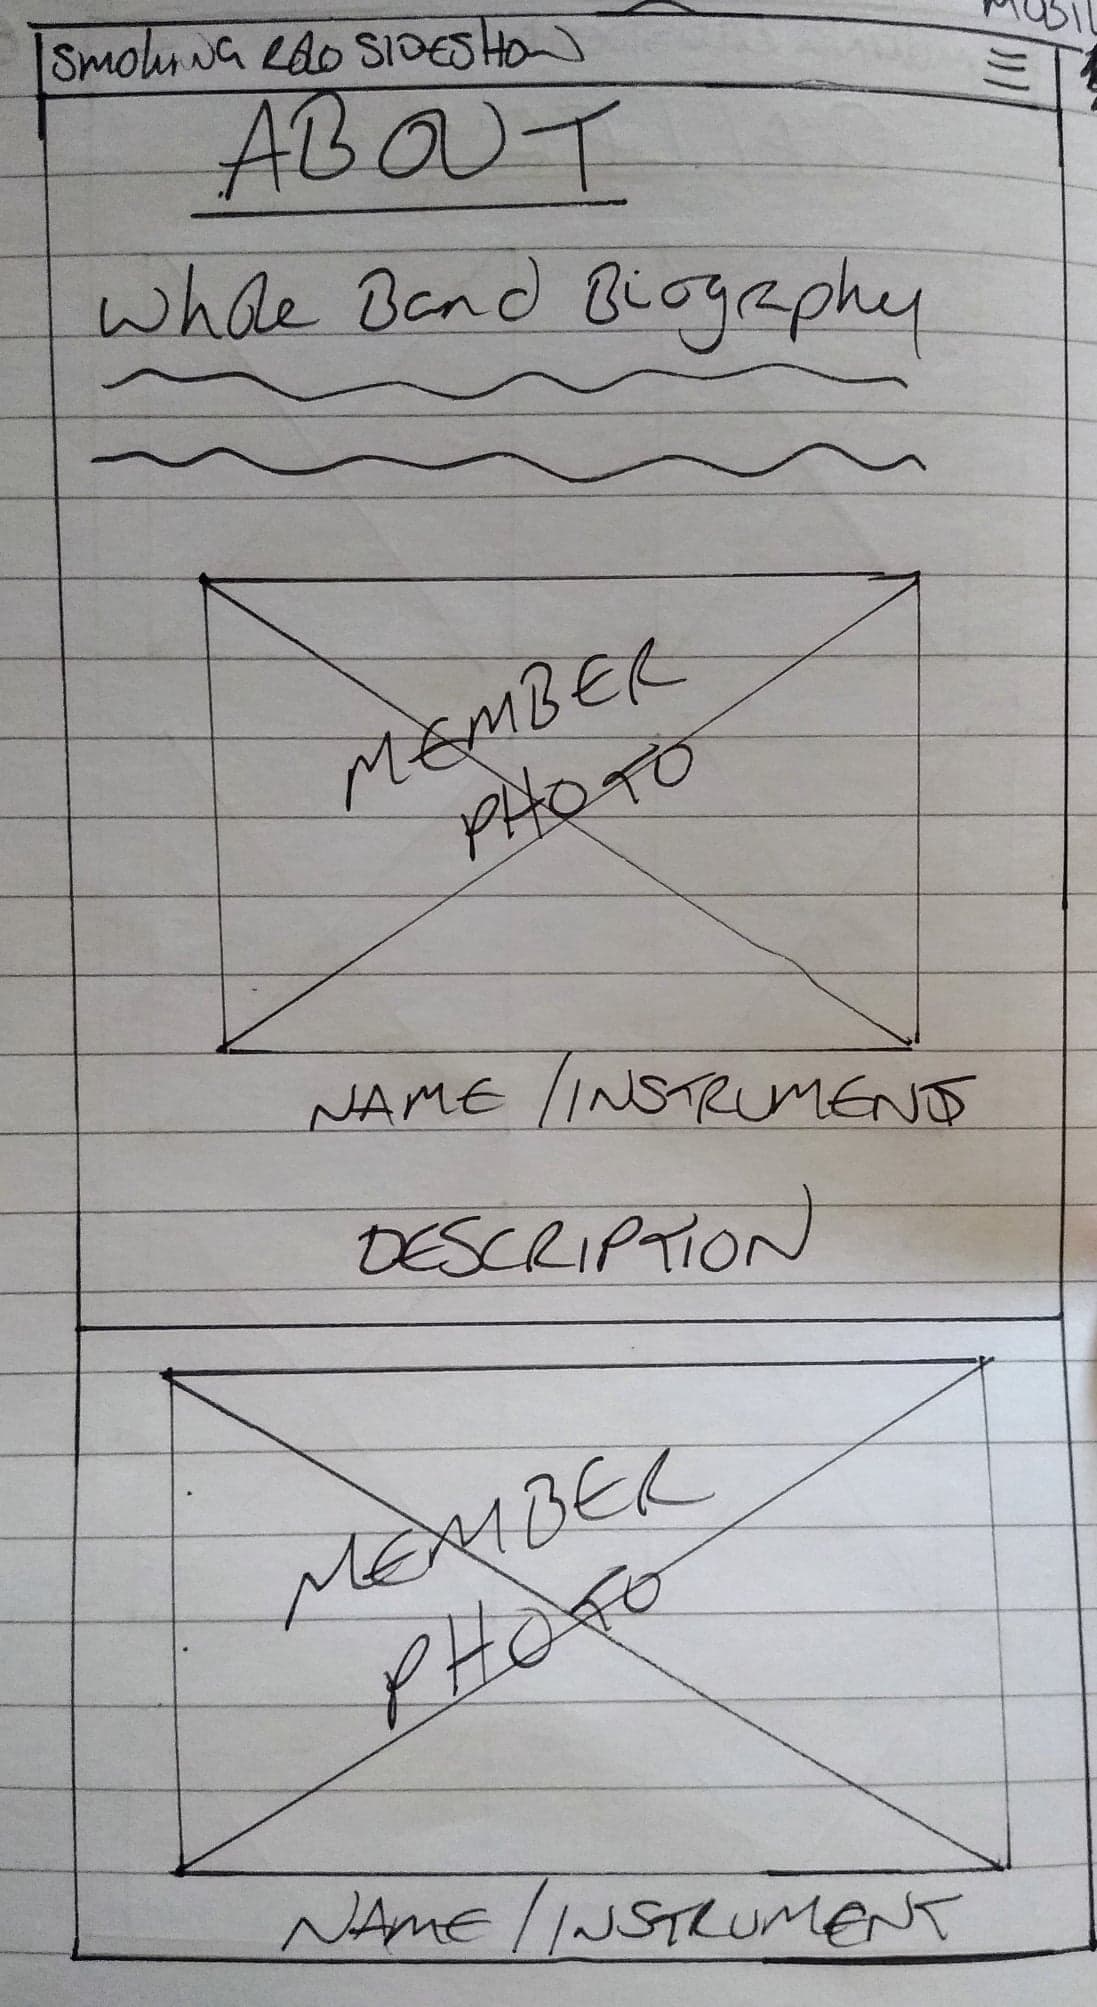 MOBIL
SMOKING RAO SIDESHOW
ABOUT
Whole Band Biography
MEMBER
PHOTO
NAME / INSTRUMENTS
DESCRIPTION
MEMBER
PHOTO
NAME / INSTRUMENT